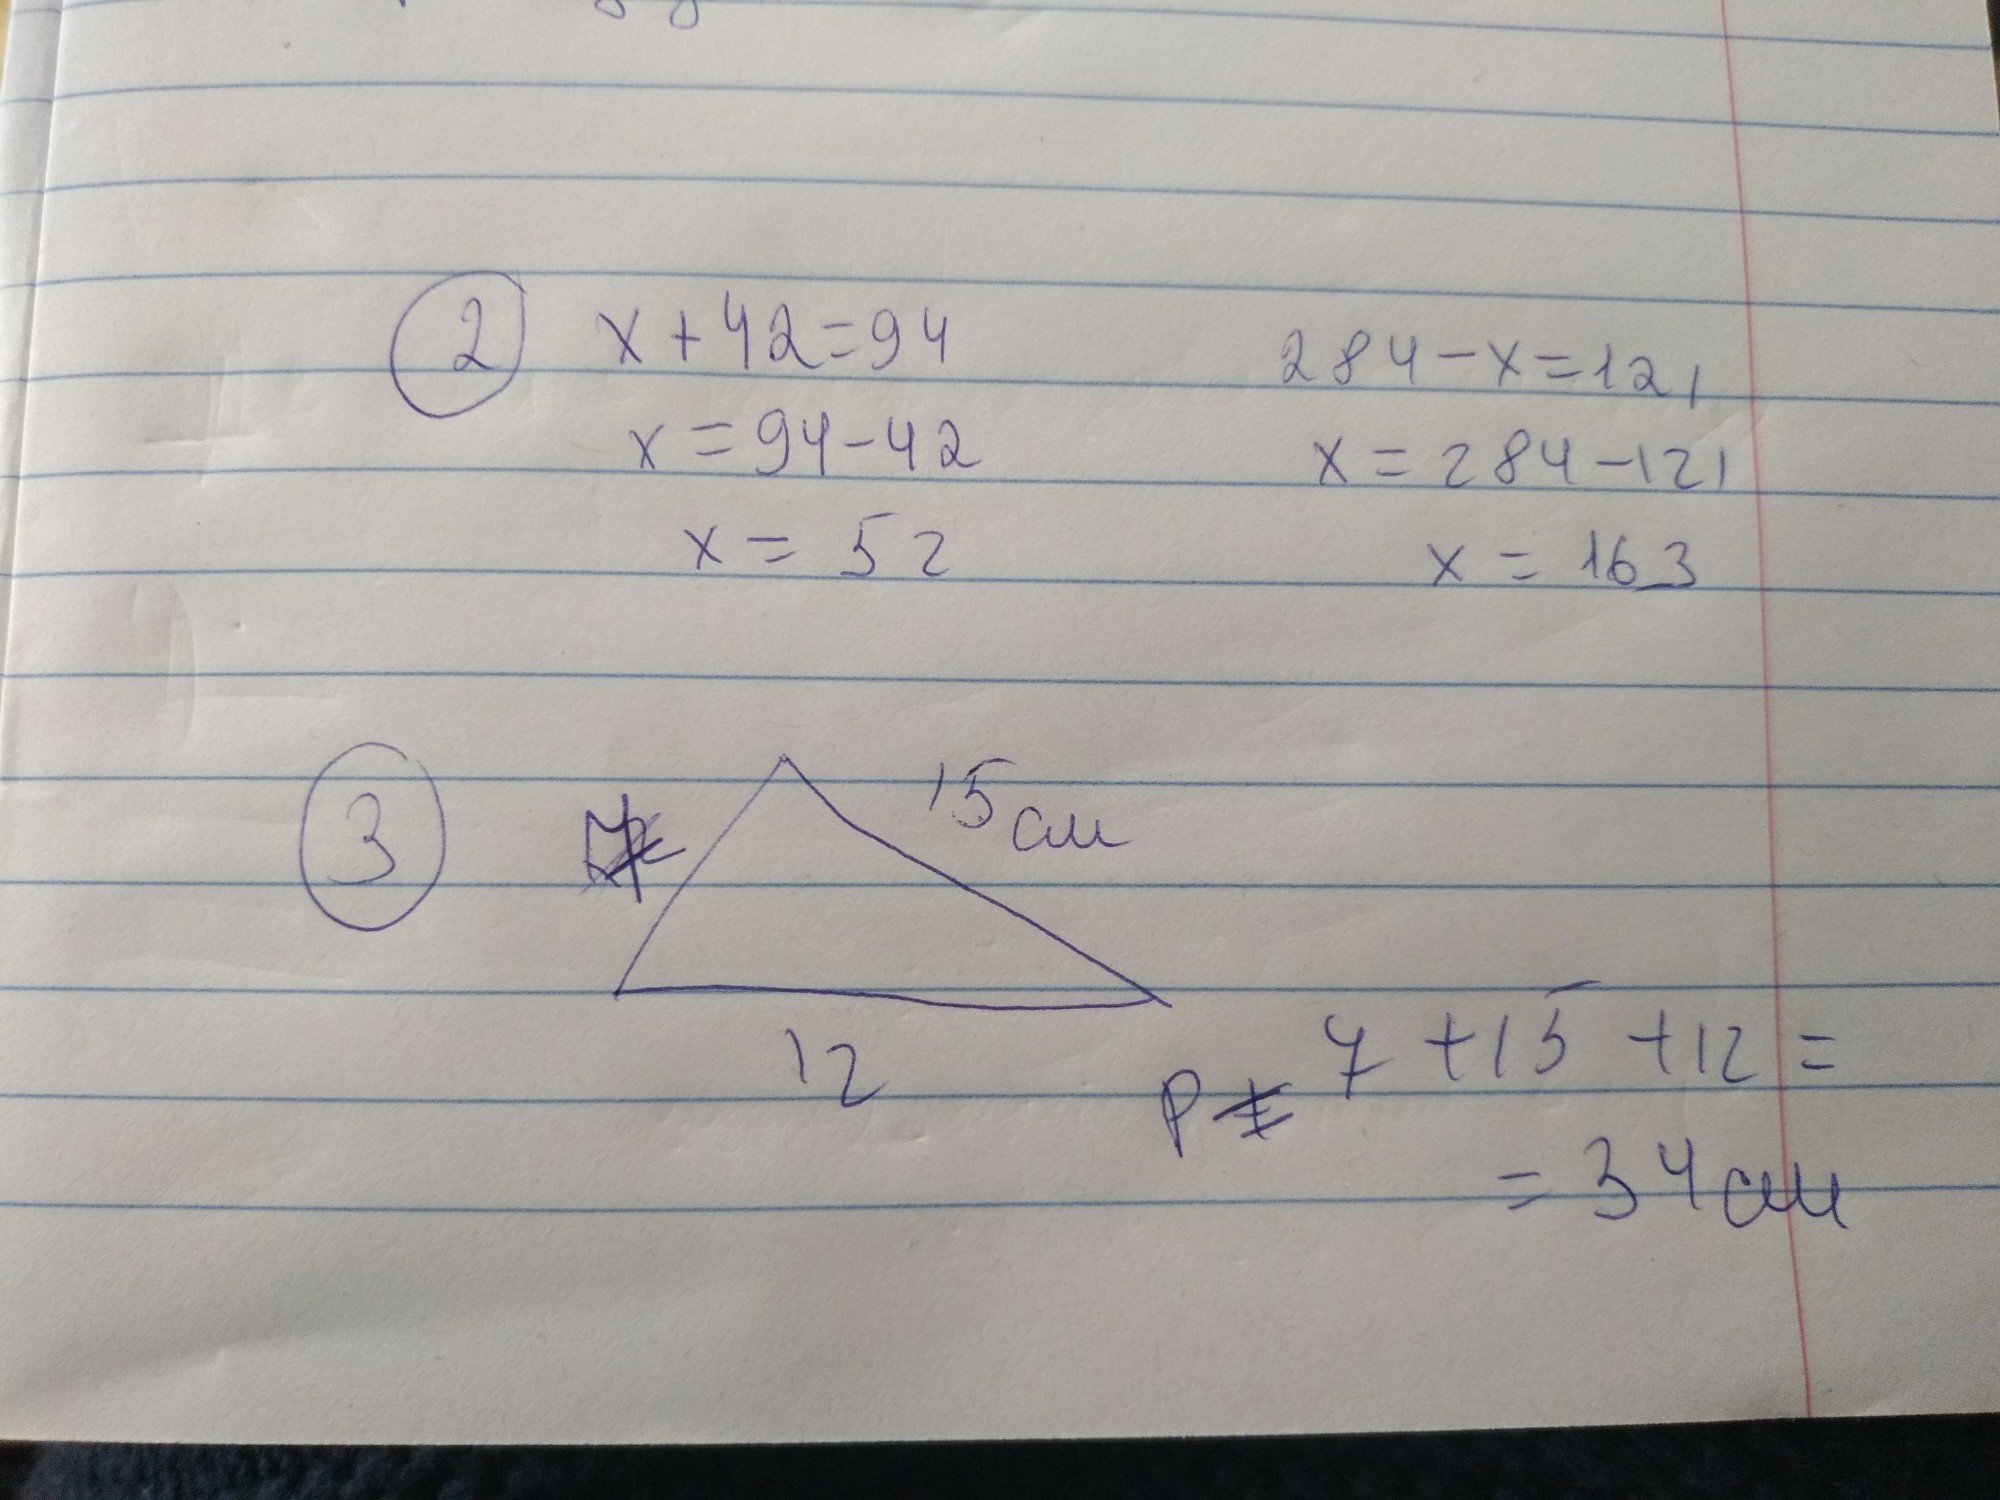 2 x + 42 = 94
x = 94 - 42
x = 52
284 - x = 121
x = 284 - 121
x = 163
3
15 см
12
P = 7 + 15 + 12 =
= 34 см